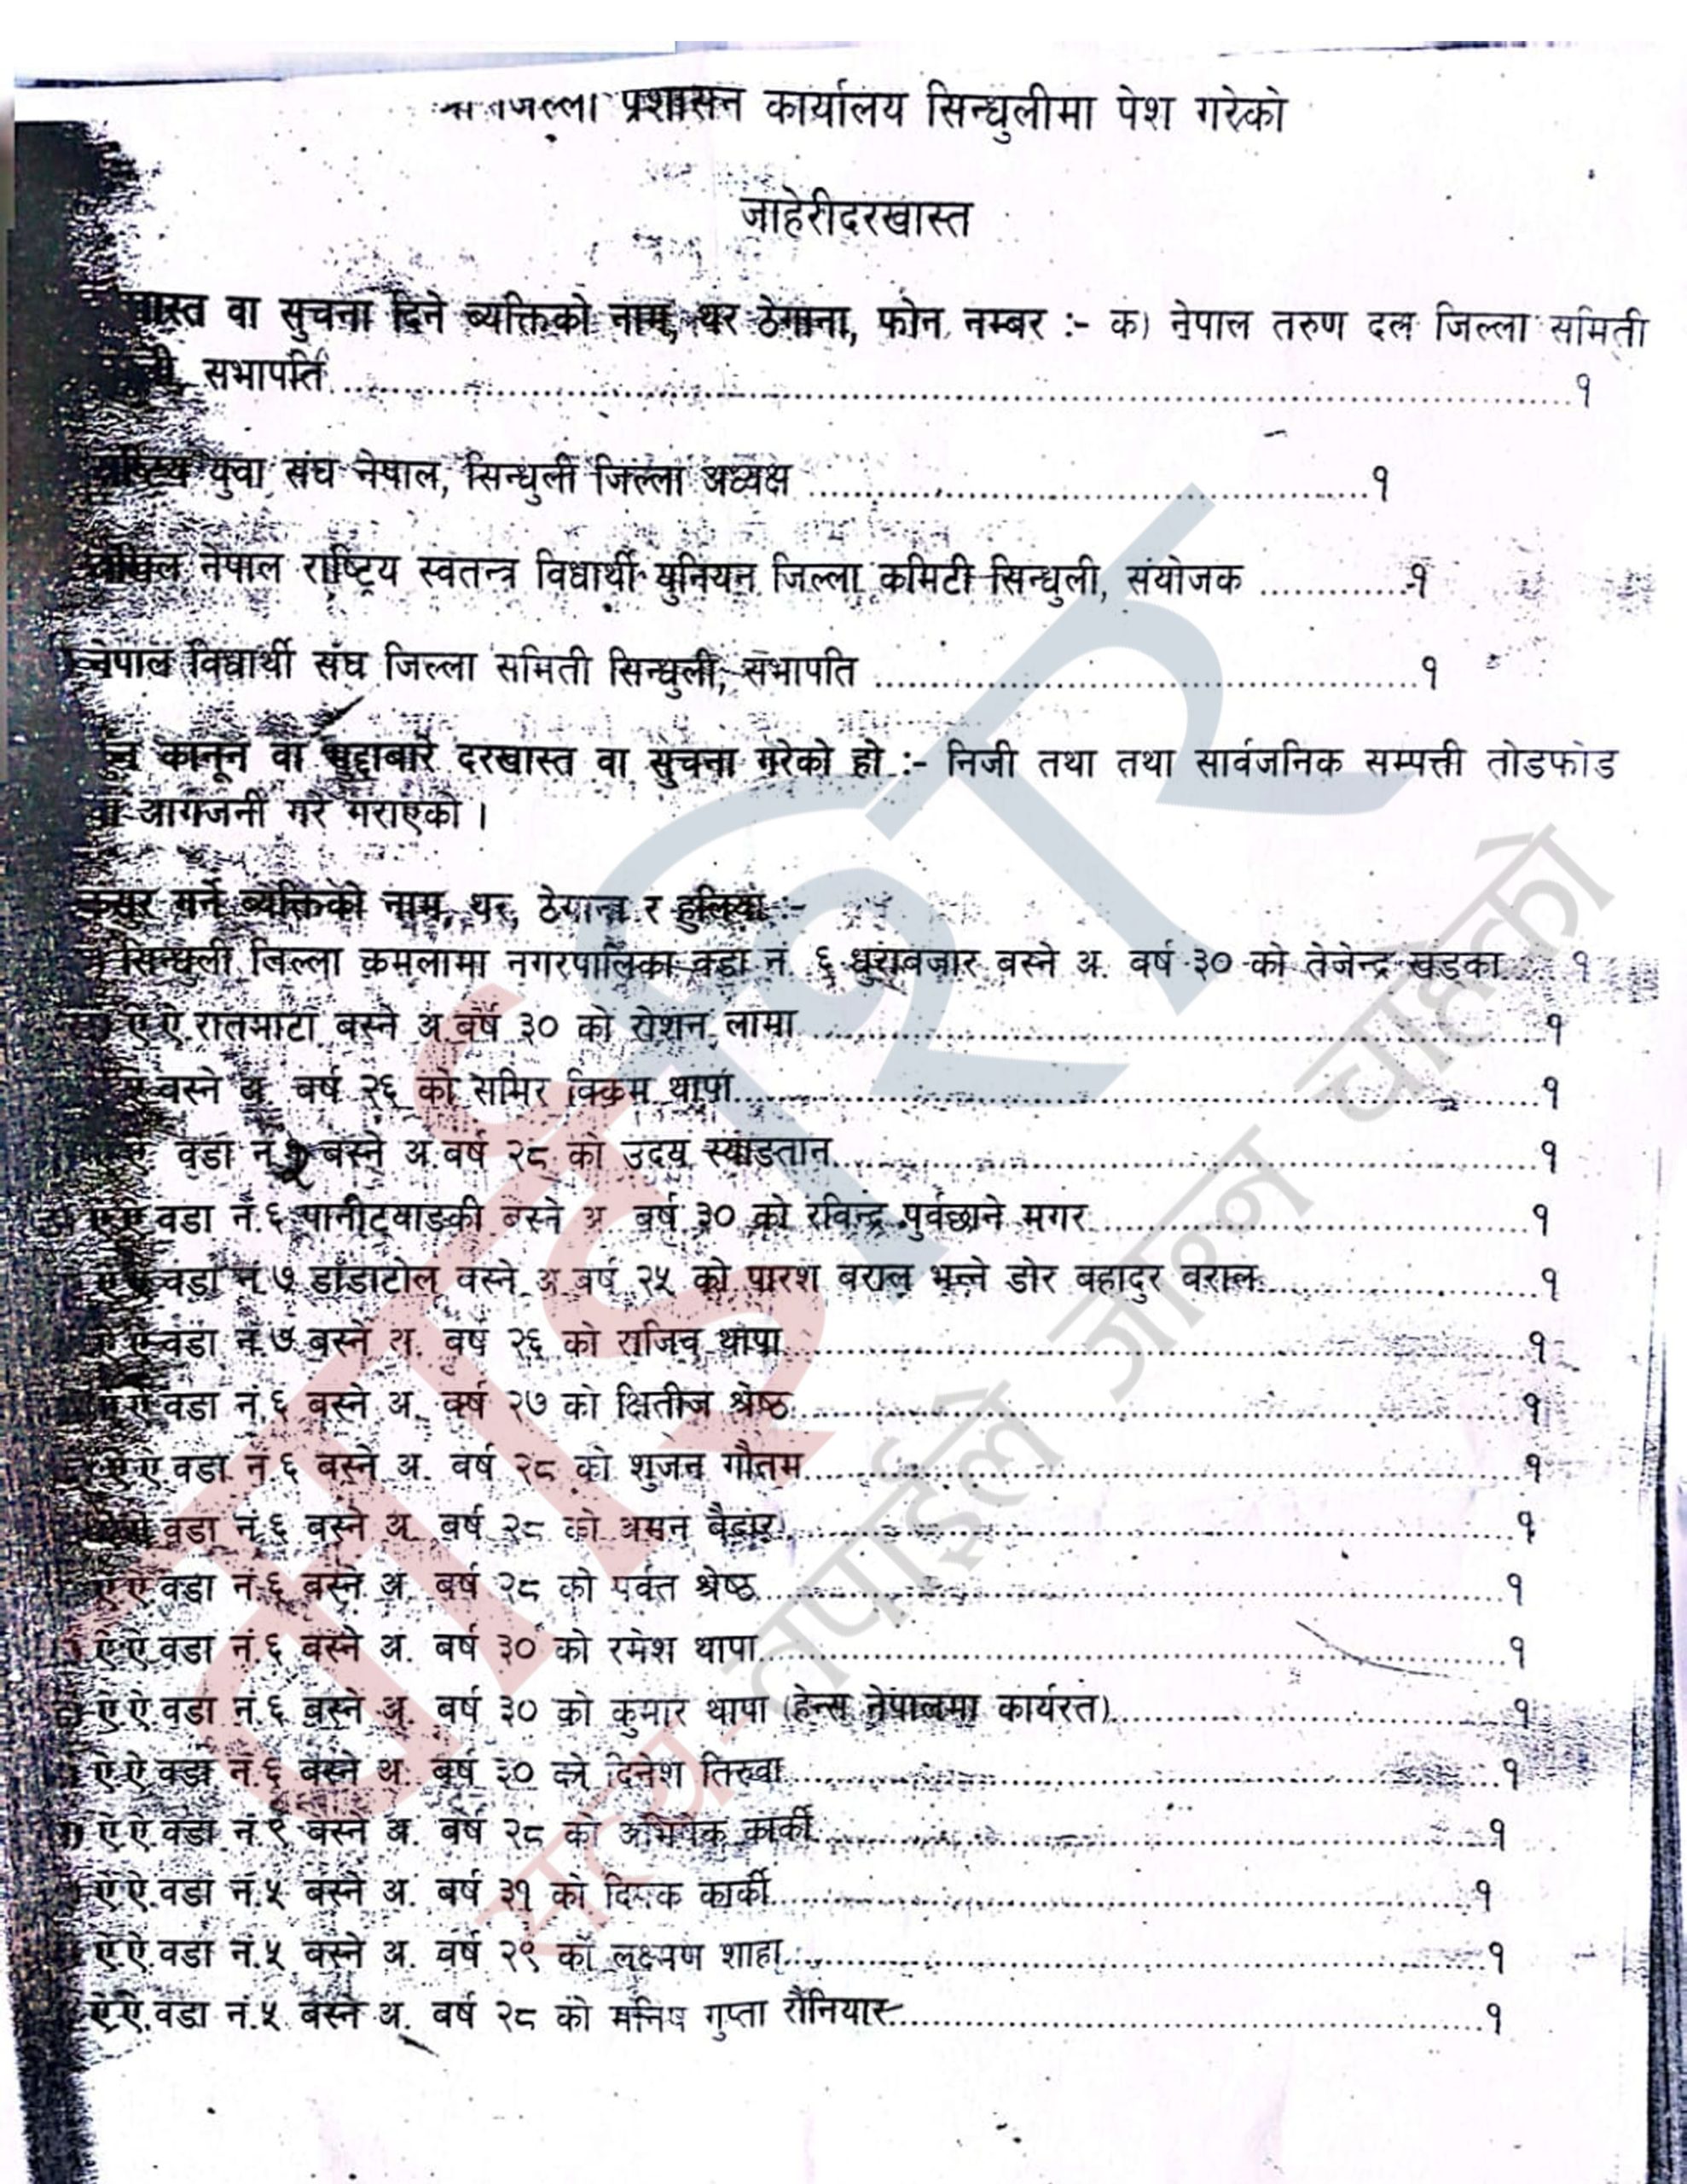 जिल्ला प्रशासन कार्यालय सिन्धुलीमा पेश गरेको
जाहेरीदरखास्त
वा सुचना दिने व्यक्तिको नाम, थर ठेगाना, फोन नम्बर :- क) नेपाल तरुण दल जिल्ला समिती
सभापति ........ १
युवा संघ नेपाल, सिन्धुली जिल्ला अध्यक्ष ........ १
नेपाल राष्ट्रिय स्वतन्त्र विद्यार्थी युनियन जिल्ला कमिटी सिन्धुली, संयोजक ........ १
नेपाल विद्यार्थी संघ जिल्ला समिती सिन्धुली, सभापति ........ १
कानून वा मुद्दाबारे दरखास्त वा सुचना गरेको हो :- निजी तथा तथा सार्वजनिक सम्पत्ती तोडफोड
आगजनी गरे गराएको ।
कसुर गर्ने व्यक्तिको नाम, थर, ठेगाना र हुलिया :-
सिन्धुली जिल्ला कमलामा नगरपालिका वडा नं. ६ धुराबजार बस्ने अ. वर्ष ३० को तेजेन्द्र खड्का १
ऐ.ऐ.रातमाटा बस्ने अ.वर्ष ३० को रोशन लामा ........ १
बस्ने अ. वर्ष २६ को समिर विक्रम थापा ........ १
वडा नं. २ बस्ने अ.वर्ष २८ को उदय स्याङतान ........ १
ऐ.ऐ.वडा नं.६ पानीट्याङ्की बस्ने अ. वर्ष ३० को रविन्द्र पुर्वछाने मगर ........ १
ऐ.ऐ.वडा नं.७ डाँडाटोल बस्ने अ वर्ष २५ को पारश बराल भन्ने डोर बहादुर बराल ........ १
ऐ.ऐ.वडा नं.७ बस्ने अ. वर्ष २६ को राजिव थापा ........ १
ऐ.ऐ.वडा नं.६ बस्ने अ. वर्ष २७ को क्षितीज श्रेष्ठ ........ १
ऐ.ऐ.वडा नं.६ बस्ने अ. वर्ष २८ को शुजन गौतम ........ १
वडा नं.६ बस्ने अ. वर्ष २८ को अमन ........ १
ऐ.ऐ.वडा नं.६ बस्ने अ. वर्ष २८ को पर्वत श्रेष्ठ ........ १
ऐ.ऐ.वडा नं.६ बस्ने अ. वर्ष ३० को रमेश थापा ........ १
ऐ.ऐ.वडा नं.६ बस्ने अ. वर्ष ३० को कुमार थापा (हेन्स नेपालमा कार्यरत) ........ १
ऐ.ऐ.वडा नं.६ बस्ने अ. वर्ष ३० को दिनेश तिरुवा ........ १
ऐ.ऐ.वडा नं.९ बस्ने अ. वर्ष २८ को अभिषेक कार्की ........ १
ऐ.ऐ.वडा नं.५ बस्ने अ. वर्ष ३१ को दिपक कार्की ........ १
ऐ.ऐ.वडा नं.५ बस्ने अ. वर्ष २९ को लक्ष्मण शाहा ........ १
ऐ.ऐ.वडा नं.५ बस्ने अ. वर्ष २८ को मनिष गुप्ता रौनियार ........ १
सत्य-तपाईले जान्न चाहेको